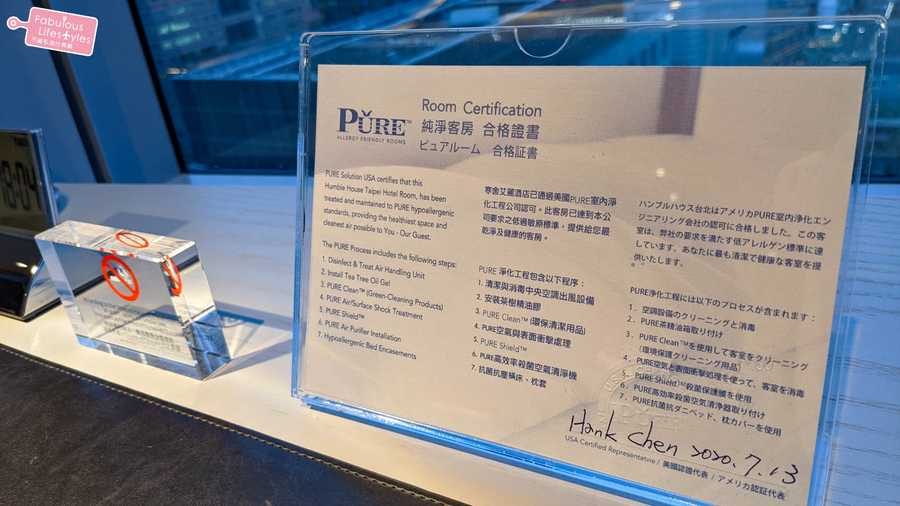 Fabulous
Lifestyles
19:04
PURE™
ALLERGY FRIENDLY ROOMS
Room Certification
純淨客房 合格證書
ピュアルーム 合格証書
PURE Solution USA certifies that this
Humble House Taipei Hotel Room, has been
treated and maintained to PURE hypoallergenic
standards, providing the healthiest space and
cleanest air possible to You - Our Guest.
The PURE Process includes the following steps:
1. Disinfect & Treat Air Handling Unit
2. Install Tea Tree Oil Gel
3. PURE Clean™ (Green-Cleaning Products)
4. PURE Air/Surface Shock Treatment
5. PURE Shield™
6. PURE Air Purifier Installation
7. Hypoallergenic Bed Encasements
寒舍艾麗酒店已通過美國PURE室內淨
化工程公司認可。此客房已達到本公
司要求之低過敏原標準，提供給您最
乾淨及健康的客房。
PURE 淨化工程包含以下程序：
1. 清潔與消毒中央空調出風設備
2. 安裝茶樹精油膠
3. PURE Clean™ (環保清潔用品)
4. PURE空氣與表面衝擊處理
5. PURE Shield™
6. PURE高效率殺菌空氣清淨機
7. 抗菌抗塵蟎床、枕套
ハンブルハウス台北はアメリカPURE室内浄化エン
ジニアリング会社の認可に合格しました。この客
室は、弊社の要求を満たす低アレルゲン標準に達
しています。あなたに最も清潔で健康な客室を提
供いたします。
PURE浄化工程には以下のプロセスが含まれます：
1. 空調設備のクリーニングと消毒
2. PURE茶精油箱取り付け
3. PURE Clean™を使用して客室をクリーニング
(環境保護クリーニング用品)
4. PURE空気と表面衝撃処理を使って、客室を消毒
5. PURE Shield™殺菌保護膜を使用
6. PURE高効率殺菌空気清浄器取り付け
7. PURE抗菌抗ダニベッド、枕カバーを使用
Hank Chen 2020.7.13
USA Certified Representative / 美國認證代表 / アメリカ認証代表